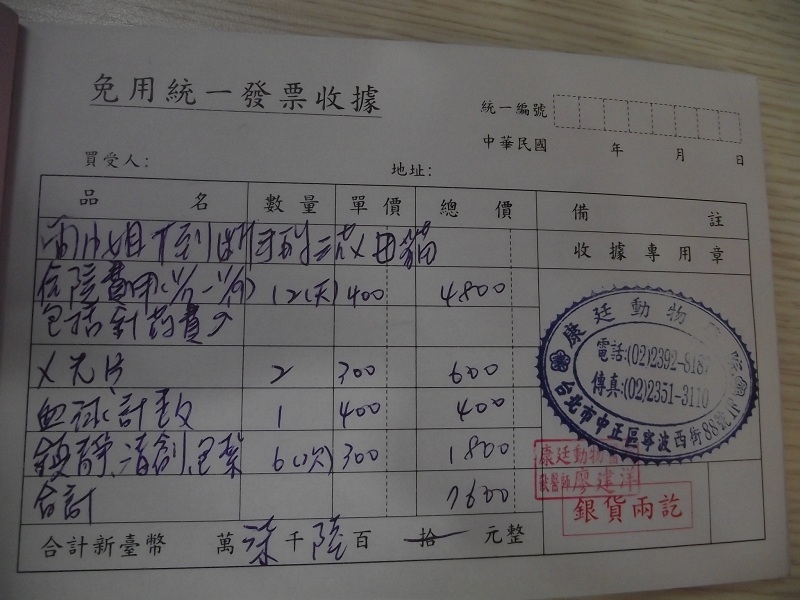 免用統一發票收據
統一編號
中華民國 年 月 日
買受人: 地址:
品名 數量 單價 總價 備註
收據專用章
住院費用 12(天) 400 4800
包括針药費
X光片 2 300 600
血球計數 1 400 400
鎮靜.清創.包紮 6(次) 300 1800
合計 7600
合計新臺幣 萬柒千陸百 拾 元整
康廷動物
電話:(02)2392-818
傳真:(02)2351-3110
台北市中正區寧波西街88號
康廷動物
獸醫師 廖建洋
銀貨兩訖